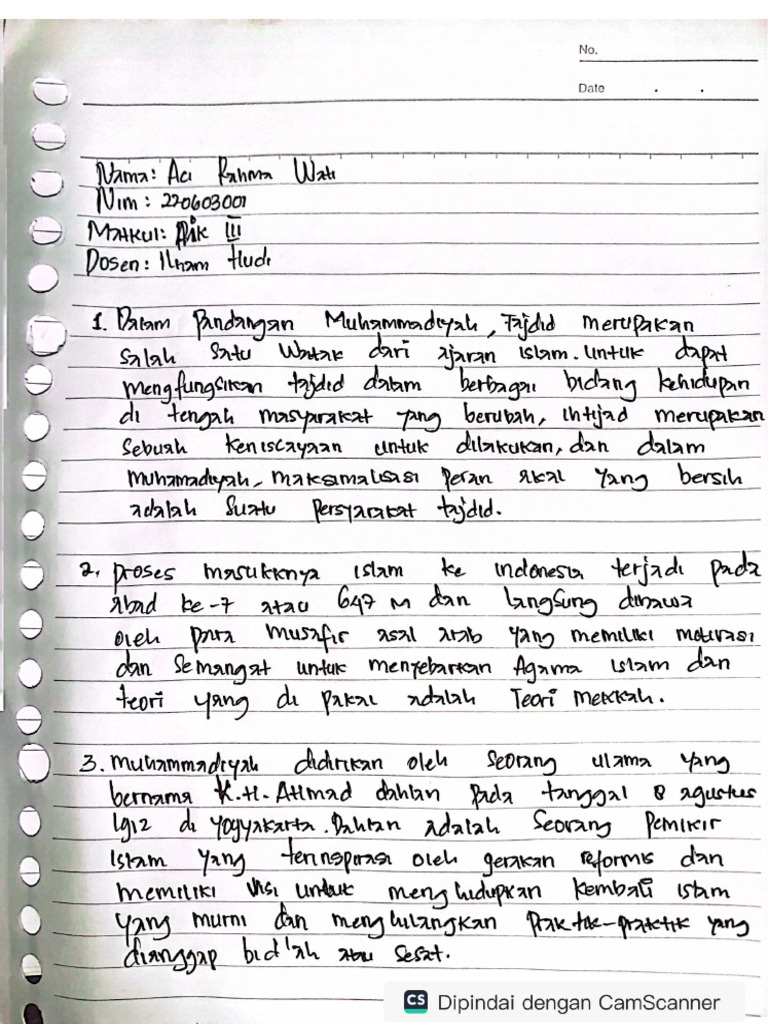 No.
Date . .
Nama: Aci Rahma Wati
Nim: 220603001
Matkul: Aik III
Dosen: Ilham Hudi
1. Dalam Pandangan Muhammadiyah, Tajdid merupakan
salah satu watak dari ajaran islam. untuk dapat
mengfungsikan tajdid dalam berbagai bidang kehidupan
di tengah masyarakat yang berubah, ihtijad merupakan
sebuah keniscayaan untuk dilakukan, dan dalam
muhamadiyah, maksimalisasi peran akal yang bersih
adalah suatu persyaratat tajdid.
2. proses masukknya islam ke indonesia terjadi pada
abad ke-7 atau 647 M dan langsung dibawa
oleh para musafir asal arab yang memiliki motivasi
dan semangat untuk menyebarkan Agama islam dan
teori yang di pakai adalah Teori mekkah.
3. muhammadiyah didirikan oleh seorang ulama yang
bernama K.H. Ahmad dahlan pada tanggal 8 agustus
1912 di yogyakarta. Dahlan adalah seorang pemikir
islam yang terinspirasi oleh gerakan reformis dan
memiliki visi untuk menghidupkan kembali islam
yang murni dan menghilangkan praktek-praktik yang
dianggap bid'ah atau sesat.
CS Dipindai dengan CamScanner